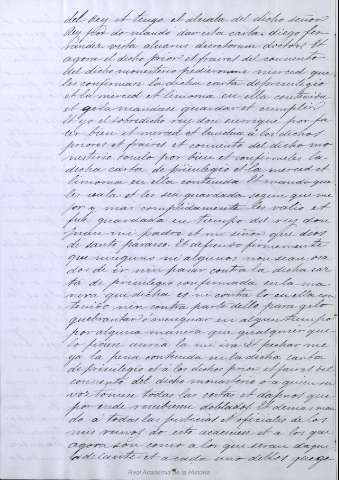 del Rey et tengo el alvala del dicho señor
Rey por do mando dar esta carta. diego fer-
nandez vista alvarus decretorum doctor. Et
agora el dicho prior et fraires del convento
del dicho monesterio pedieronme merced que
les confirmase la dicha carta de previlegio
et la merced et limosna en ella contenida
et gela mandase guardar et cumplir.
Et yo el sobredicho rey don enrique por fa-
cer bien et merced et landna á los dichos
priores et fraires et convento del dicho mo-
nesterio tovelo por bien et confirmoles la
dicha carta de privilegio et la merced et
limosna en ella contenida Et mando que
les vala et les sea guardada segun que me-
jor y mas cumplidamente les valio et
fue guardada en tiempo del rey don
Juan mi padre et mi señor que dios
de santo paraiso. Et defiendo firmemente
que ninguno ni algunos non sean osa-
dos de ir nin pasar contra la dicha car-
ta de previlegio confirmada en la ma-
nera que dicha es ni contra lo en ella con-
tenido nin contra parte dello para gelo
quebrantar ó menguar en algun tiempo
por alguna manera que qualquier que
lo ficiese avria la mi ira Et pechar me
ya la pena contenida en la dicha carta
de previlegio et á los dichos prior et fraires del
convento del dicho monesterio o a quien su
voz toviese todas las costas et dapnos que
por ende recibiesen doblados. Et demas man-
do á todas las justicias et oficiales de los
mis reinos do esto acaesciere et a los que
agora son como a los que seran daqui
adelante et a cada uno dellos que ge
Real Academia de la Historia